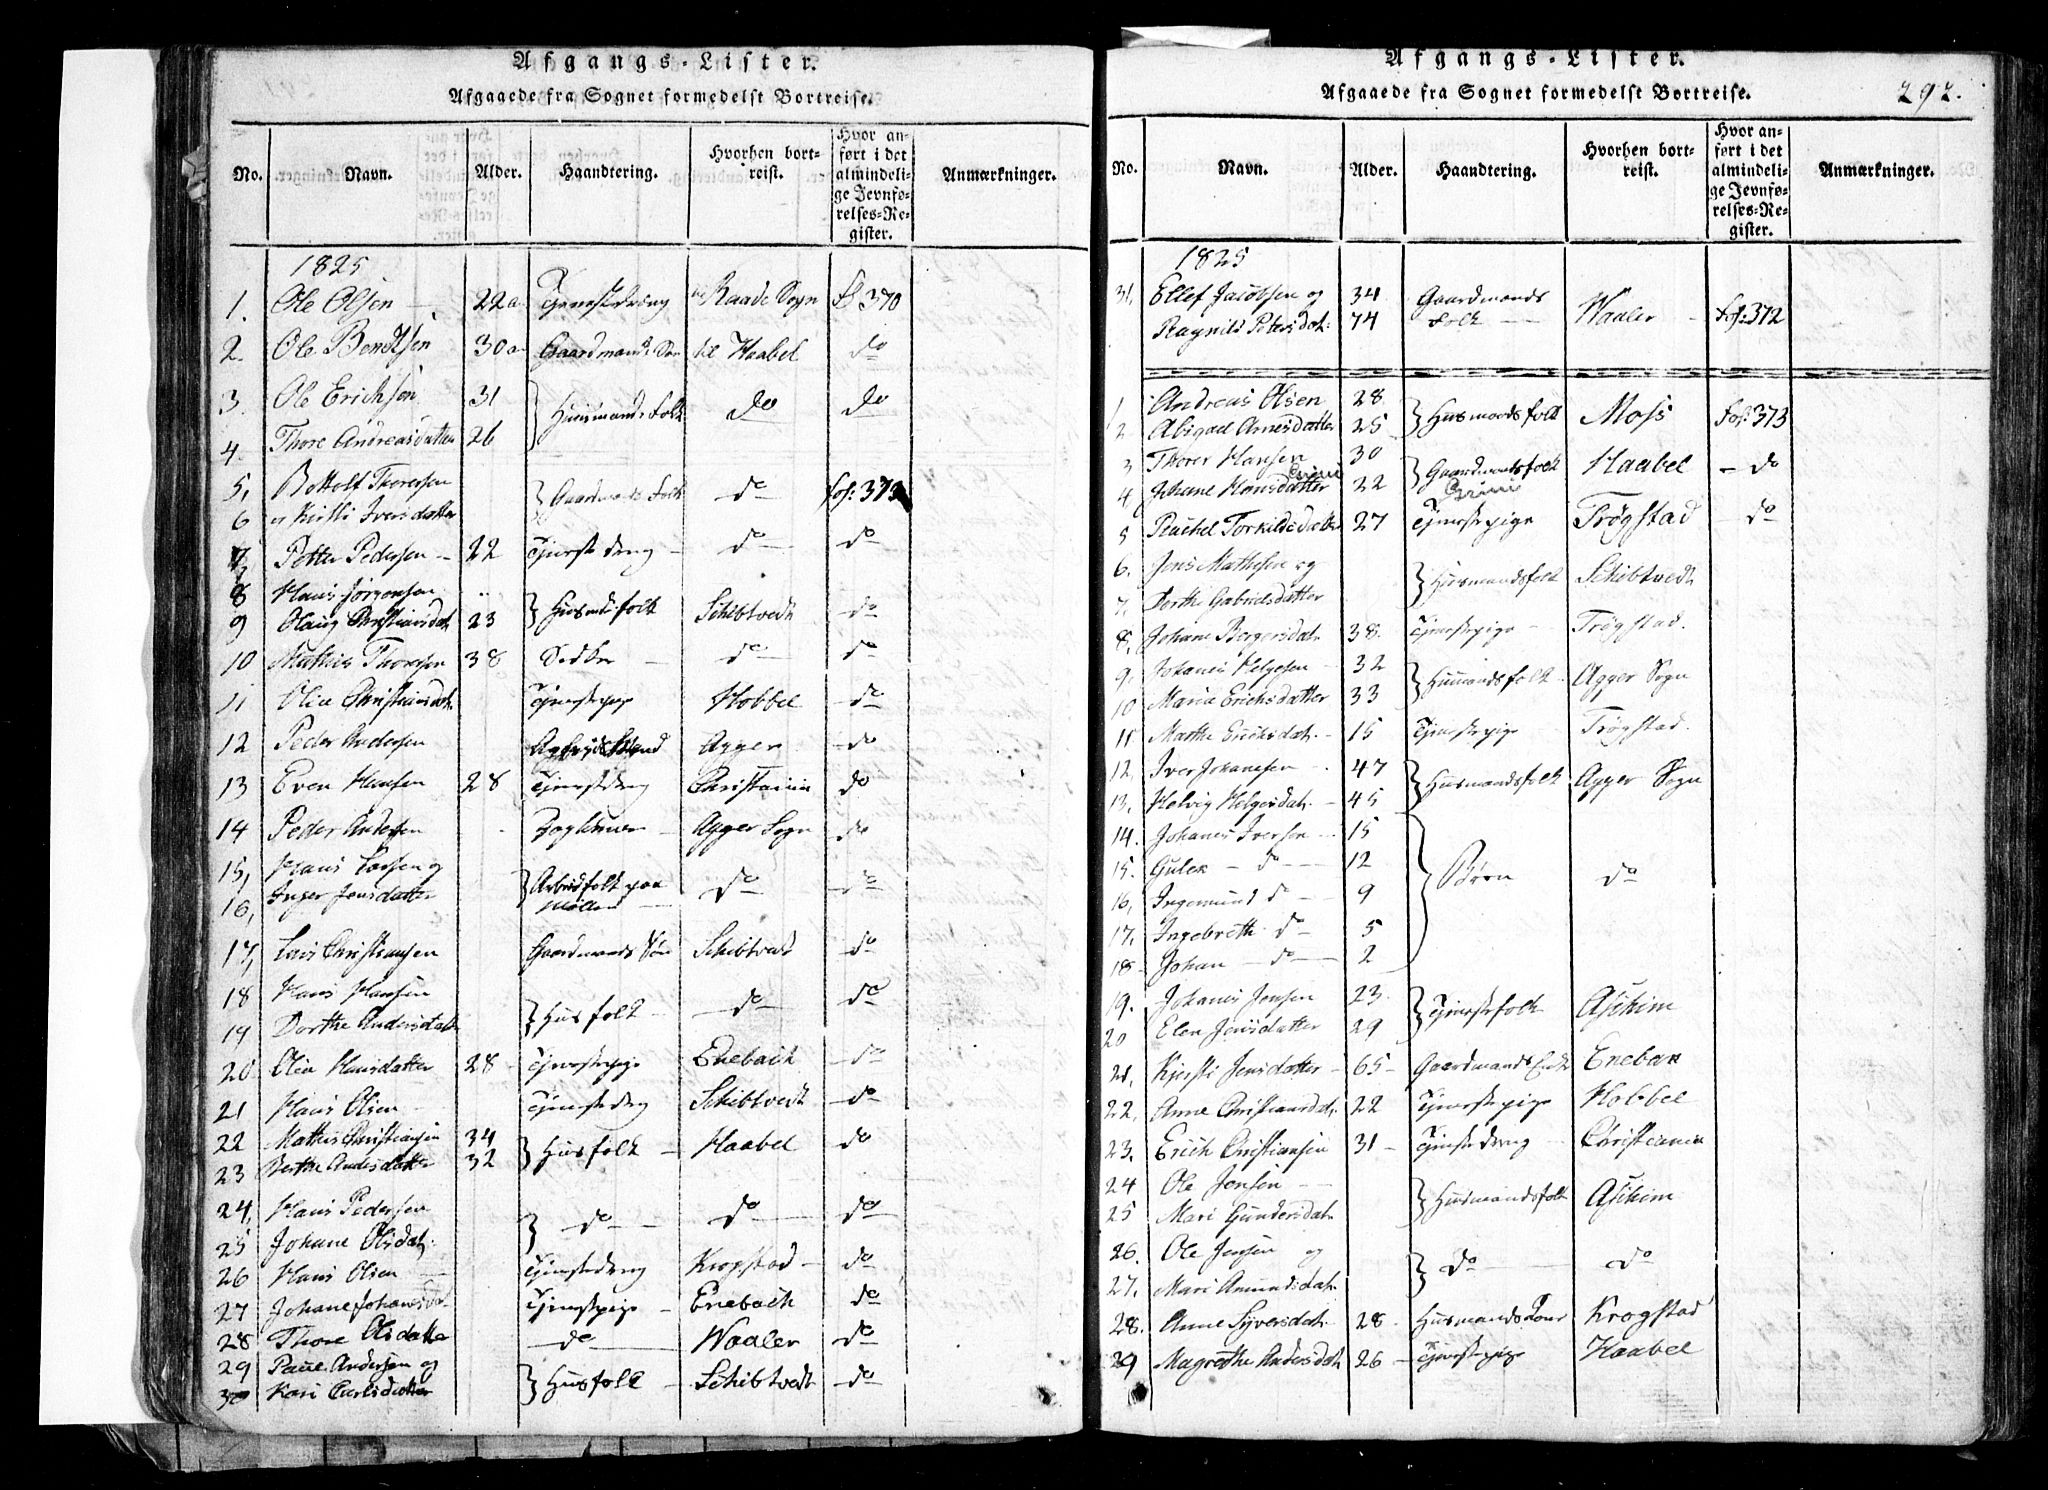 Afgangs-Lister.
Afgaaede fra Sognet formedelst Bortreise.
No. Navn. Alder. Haandtering. Hvorhen bortreist. Hvor anført i det almindelige Jevnførelses-Register. Anmærkninger.
1825
1. Ole Olsen 22 a Tjenestedreng Raade Sogn fol 370
2. Ole Bendtsen 30 a Gaardmands Søn til Haabel do
3. Ole Erichsen 31 } Huusmands Folk do do
4. Thore Andreasdatter 26
5, Bottolf Thoresen } Gaardmands Folk do fol: 373
6 og Kirsti Iversdatter
7 Petter Pedersen 22 Tjenstedreng do do
8 Hans Jørgensen
9 Olaug Christiansdat 23 } Husmdsfolk Schibtvedt do
10 Mathis Thoresen 38 do do
11 Olia Christiansdat. Tjenestepige Hobbel do
12 Peder Andersen Agger do
13 Even Hansen 28 Tjenestedreng Christania do
14 Peder Andersen Agger Sogn do
15, Hans Larsen og } Arbeidsfolk paa do do
16, Inger Jensdatter
17, Lars Christiansen Gaardmands Søn Schibtvedt do
18 Hans Hansen } Husfolk do do
19 Dorthe Andersdatt
20 Olia Hansdatter 28 Tjenestepige Enebach do
21 Hans Olsen Tjenestedreng Schibtvedt do
22 Mathis Christiansen 34 } Husfolk Haabel do
23 Berthe Andersdatter 32
24, Hans Pedersen } do do do
25 Johane Olsdat:
26 Hans Olsen Tjenestedreng Krogstad do
27 Johane Johansdat Tjenestepige Enebach do
28 Thore Olsdatter do Waaler do
29 Paul Andersen og } Husfolk Schibtvedt do
30 Kari Carlsdatter
Afgangs-Lister.
Afgaaede fra Sognet formedelst Bortreise.
292.
No. Navn. Alder. Haandtering. Hvorhen bortreist. Hvor anført i det almindelige Jevnførelses-Register. Anmærkninger.
1825
31, Ellef Jacobsen og 34 Gaardmands Waaler fol: 372
Ragnild Petersdat: 74 folk
1 Andreas Olsen 28 } Husmandsfolk Moss fol: 373
2 Abigael Arnesdatter 25
3 Thorer Hansen 30 } Gaardmandsfolk Haabel do
4 Johane Hansdatter 22
5 Rachel Torkildsdatter 27 Tjenestepige Trøgstad do
6. Jens Mathesen og } Husmandsfolk Schibtvedt
7. Dorthe Gabrielsdatter
8. Johane Børgersdat. 38. Tjenestepige Trøgstad.
9. Johanes Helgesen 32 } Husmandsfolk Agger Sogn
10 Maria Erichsdatter 33
11 Marthe Erichsdat. 15 Tjenestepige Trøgstad.
12, Iver Johanesen 47 } Husmandsfolk Agger Sogn
13, Helvig Helgesdat. 45
14. Johanes Iversen 15 } Børn do
15. Gulek do 12
16, Ingemund do 9
17. Ingebreth do 5
18 Johan do 2
19. Johanes Jensen 23. } Tjenestefolk Aschim
20 Elen Jensdatter 29
21, Kjersti Jensdatter 65 Gaardmands Enke Enebak
22, Anne Christiansdat. 22 Tjenestepige Hobbel
23. Erich Christiansen 31 Tjenestedreng Christiania
24 Ole Jensen } Husmandsfolk Aschim
25 Mari Gundersdat.
26. Ole Jensen og } do do
27. Mari Amundsdat.
28. Anne Syversdat. 28. Husmands Kone Krogstad
29 Magrethe Andersdat 26 Tjenestepige Haabel